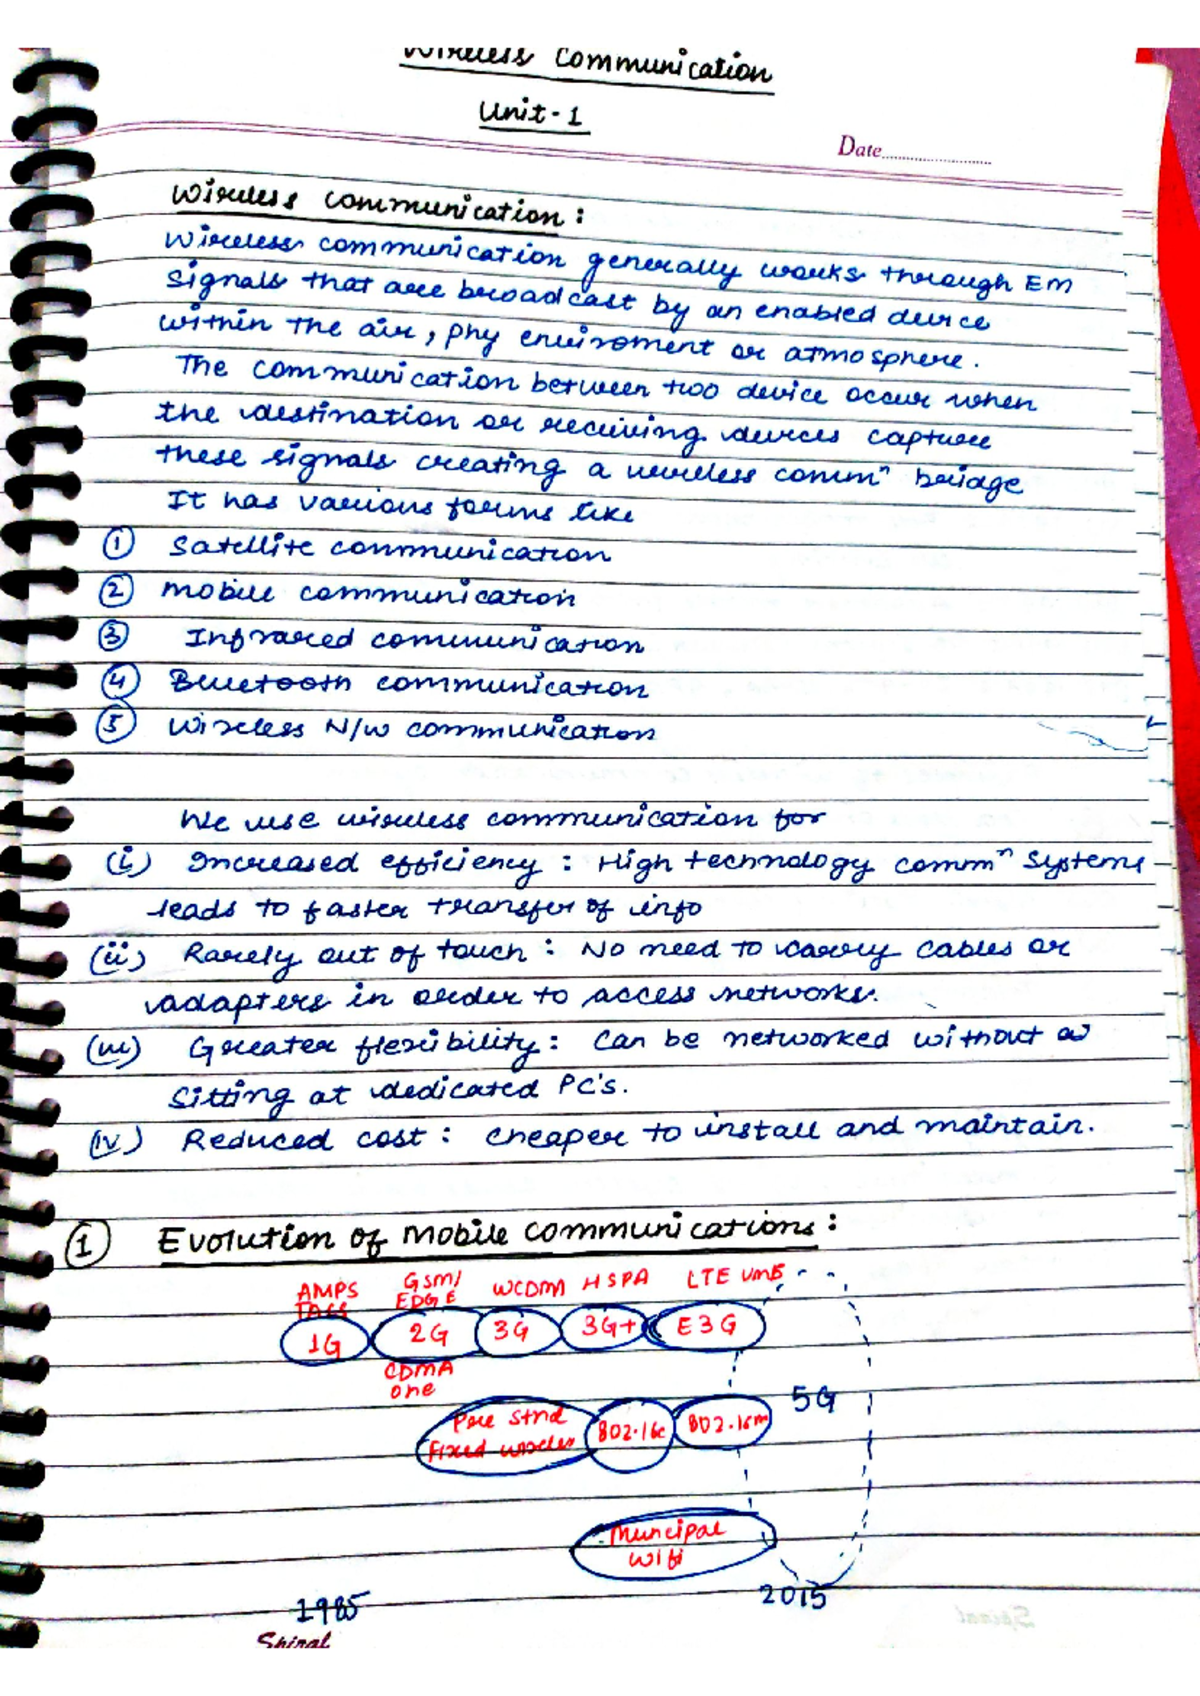 Wireless Communication
Unit - 1
Date
Wireless communication :
Wireless communication generally works through EM
signals that are broadcast by an enabled device
within the air, phy enviroment or atmosphere.
The communication between two device occur when
the destination or receiving devices capture
these signals creating a wireless commⁿ bridge
It has various forms like
① Satellite communication
② mobile communication
③ Infrared communication
④ Bluetooth communication
⑤ Wireless N/w communication
We use wireless communication for
(i) Increased efficiency : High technology commⁿ Systems
leads to faster transfer of info
(ii) Rarely out of touch : No need to carry cables or
adapters in order to access networks.
(iii) Greater flexibility : Can be networked without
sitting at dedicated PC's.
(iv) Reduced cost : cheaper to install and maintain.
① Evolution of Mobile Communications :
AMPS GSM/ WCDMA HSPA LTE UMB
TACS EDGE
1G 2G 3G 3G+ E3G
CDMA
one
5G
Pre stnd 802.16e 802.16m
Fixed wireless
Muncipal
Wifi
1985 2015
Spiral